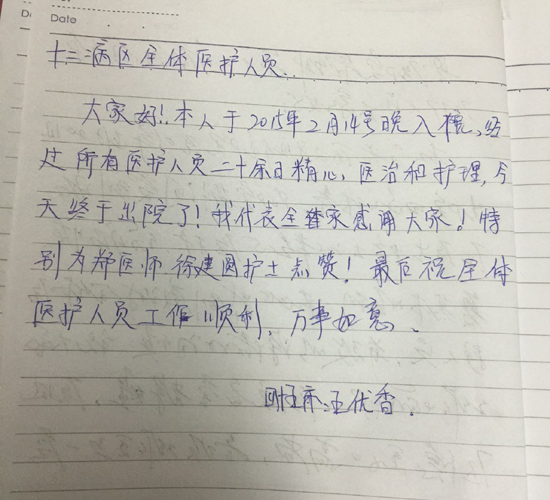 Date
十二病区全体医护人员.
大家好!本人于2015年2月14号晚入院,经
过所有医护人员二十余日精心、医治和护理,今
天终于出院了!我代表全家感谢大家!特
别为郑医师徐建圆护士点赞!最后祝全体
医护人员工作顺利,万事如意、
床:王优香.